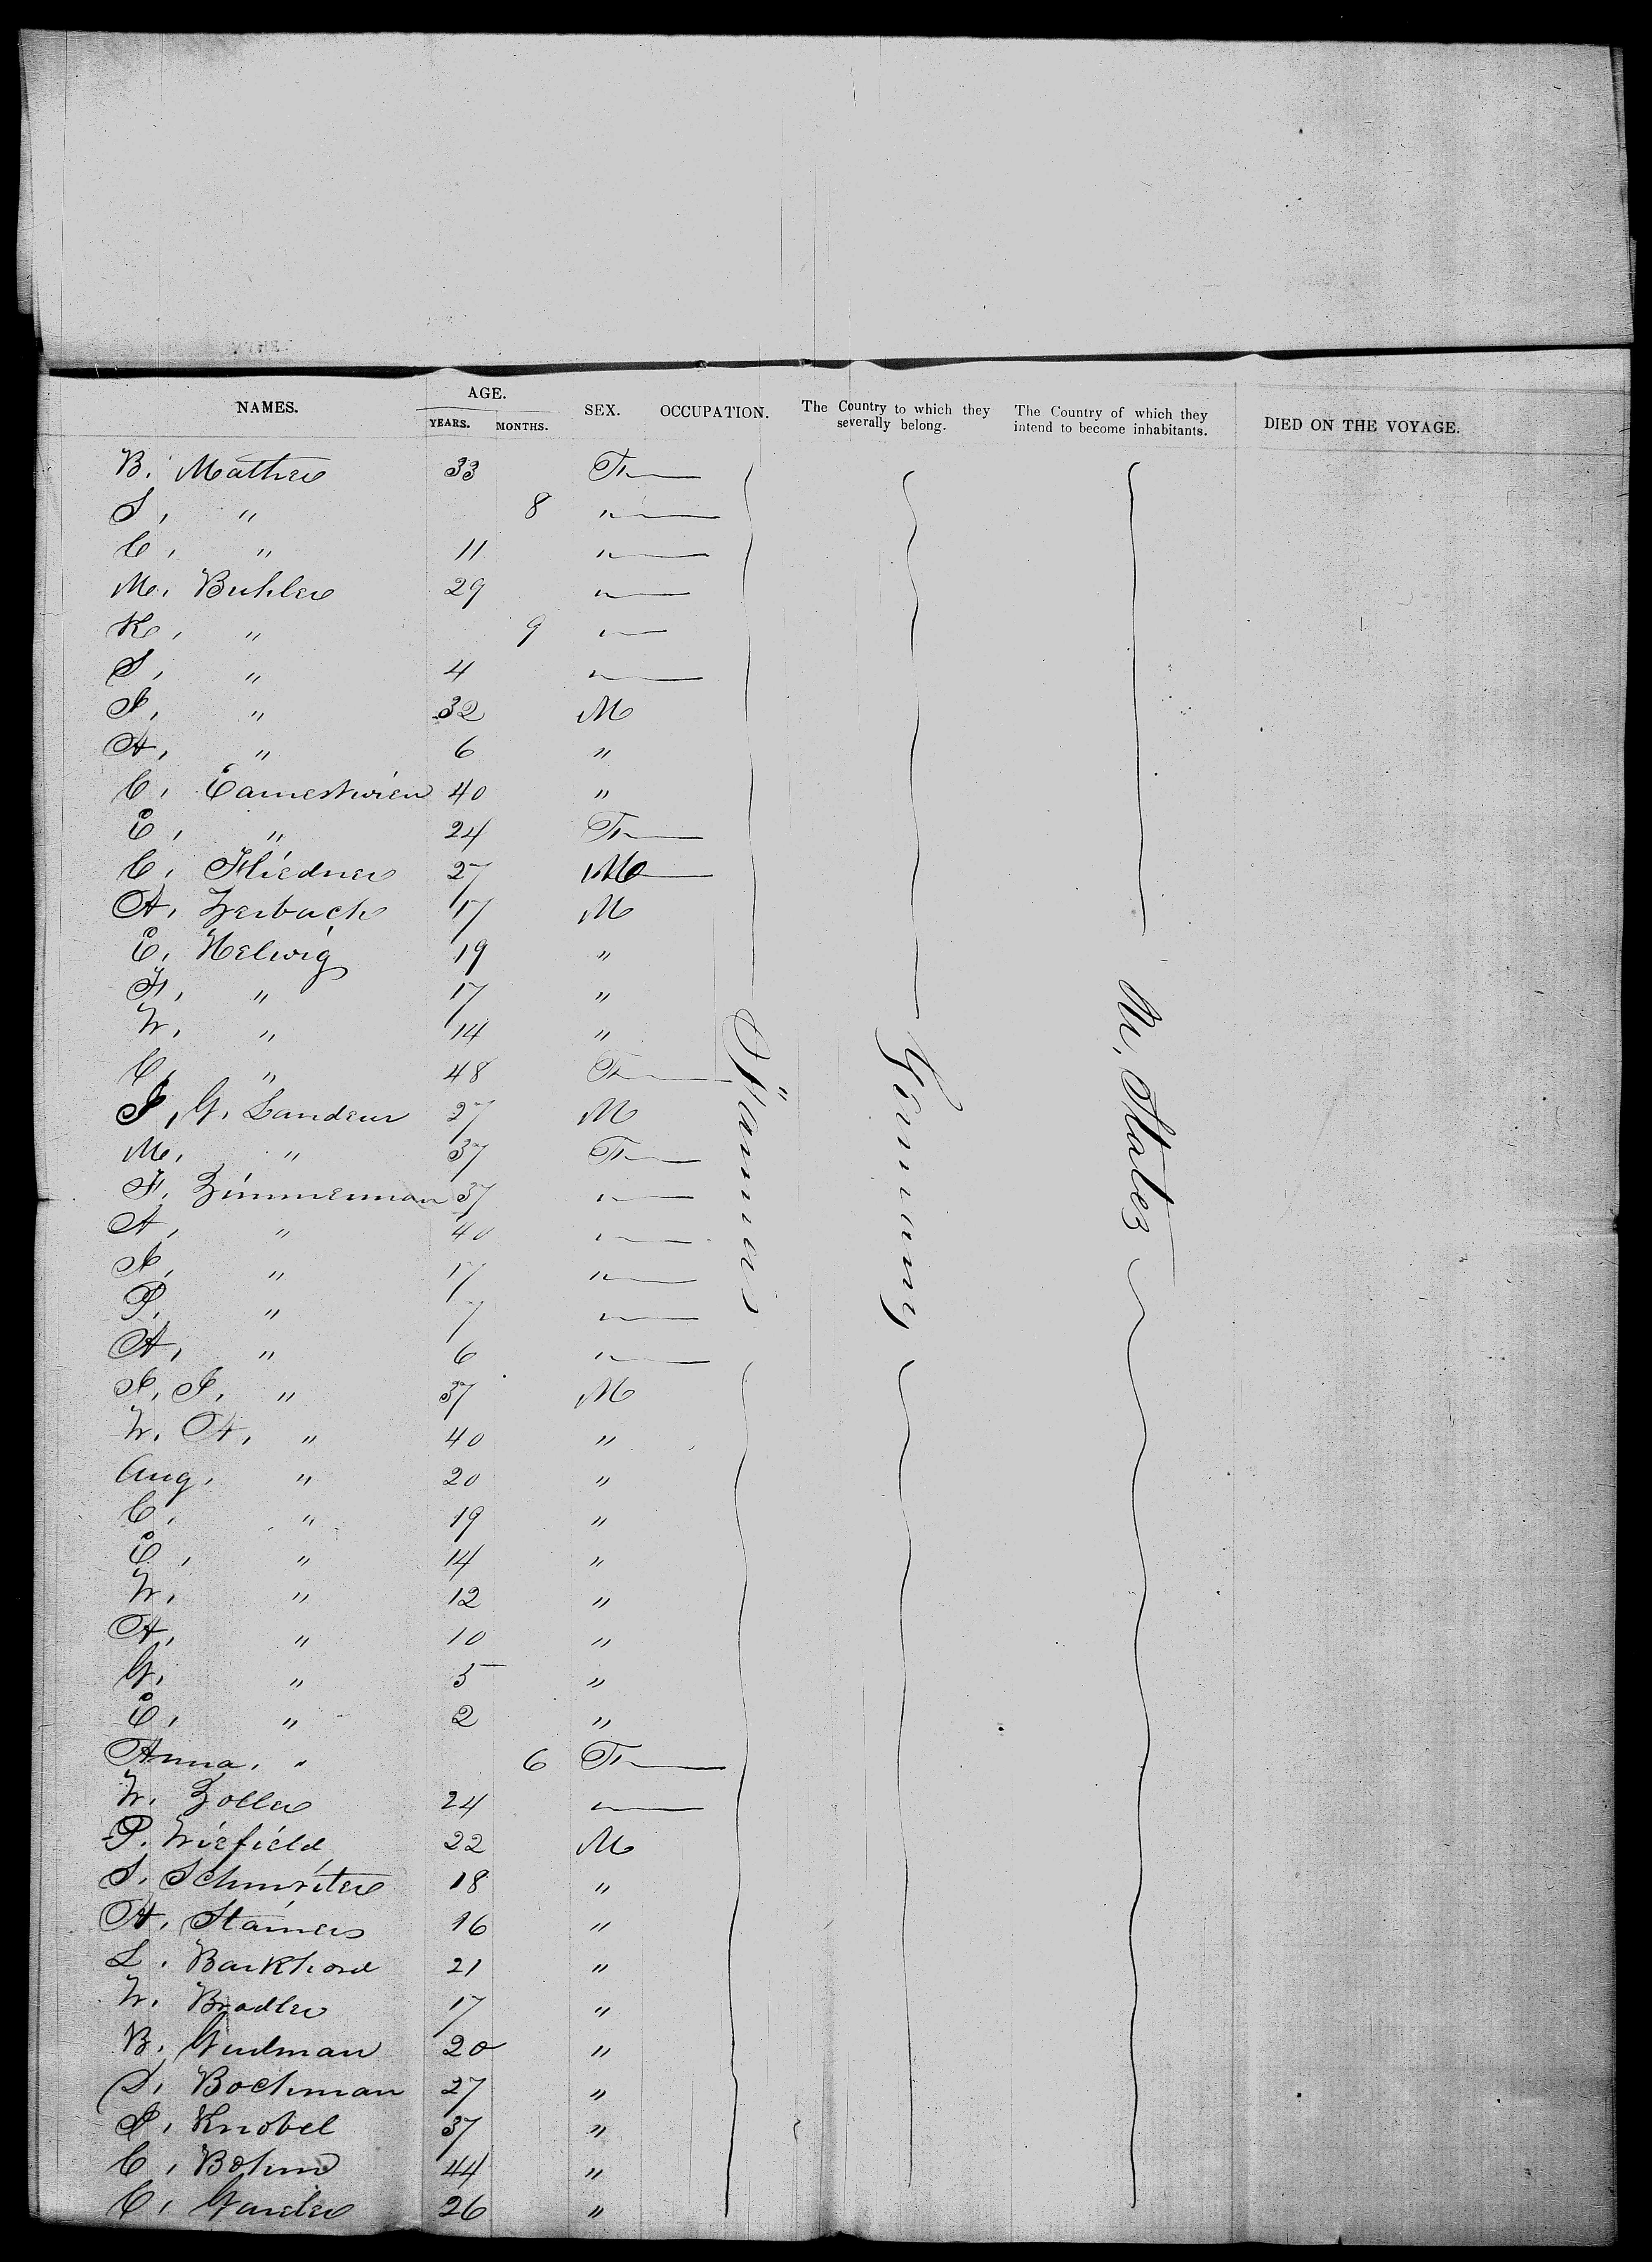 NAMES. AGE. YEARS. MONTHS. SEX. OCCUPATION. The Country to which they severally belong. The Country of which they intend to become inhabitants. DIED ON THE VOYAGE.
B. Mather 33 F
S, " 8 "
C, " 11 "
M. Buhler 29 "
K, " 9 "
S, " 4 "
J, " 32 M
A, " 6 "
C, 40 "
E, " 24 F
C, Fliedner 27 M
A, Zerbach 17 M
E, Helwig 19 "
F, " 17 "
W, " 14 "
C, " 48 F
J, G. Landeur 27 M
M, " 37 F
F. Zimmerman 37 "
A, " 40 "
J, " 17 "
P, " 7 "
A, " 6 "
J, J, " 37 M
W. A, " 40 "
Aug, " 20 "
C, " 19 "
E, " 14 "
W, " 12 "
A, " 10 "
G, " 5 "
E, " 2 "
Anna, " 6 F
W. Zoller 24 "
P. Wiefield 22 M
S. 18 "
A, Stainers 16 "
L. Barkhord 21 "
W. Bradler 17 "
B, Gudman 20 "
D, Bochman 27 "
J, Knobel 37 "
C, Bohm 44 "
C, 26 "
Germany
U, States